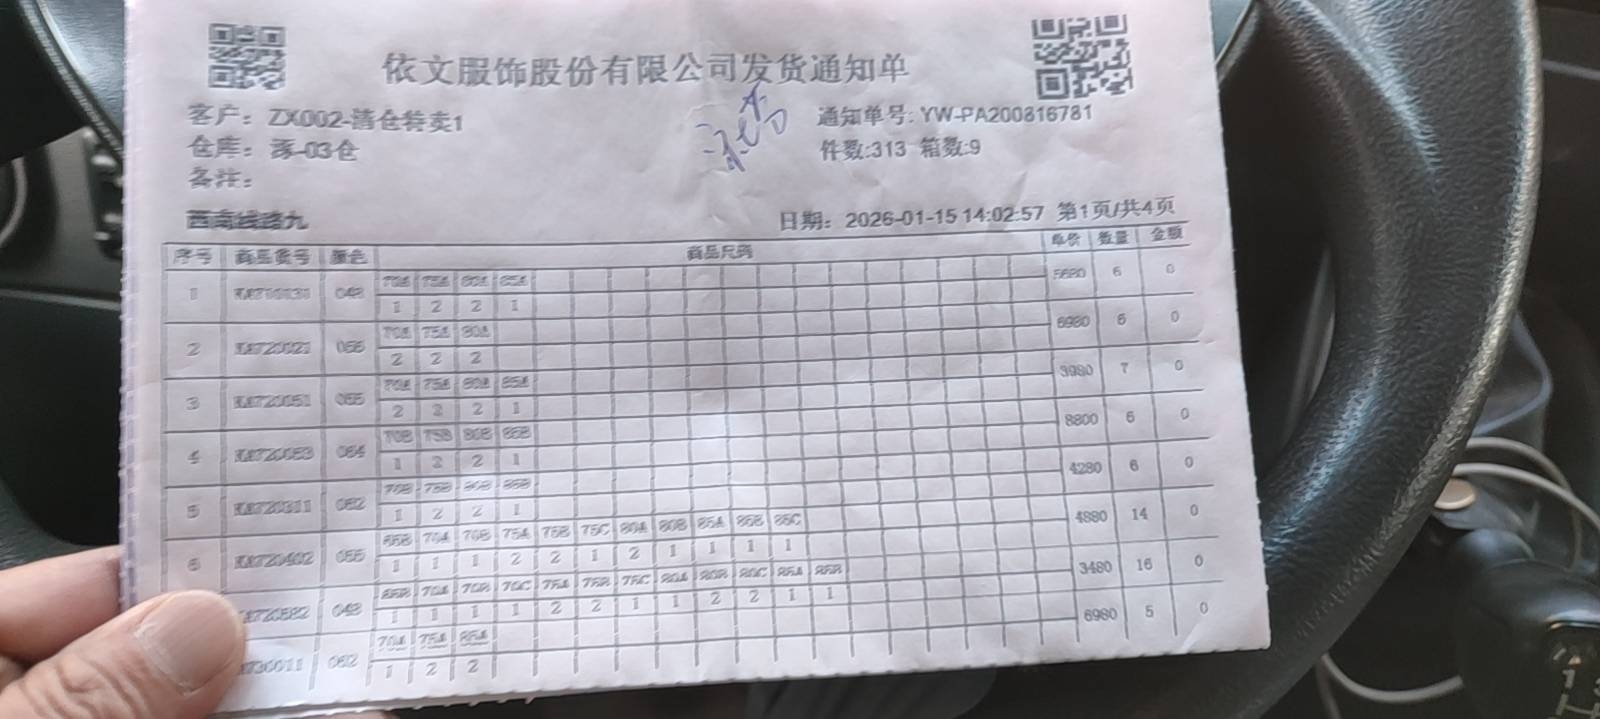 依文服饰股份有限公司发货通知单
客户：ZX002-清仓特卖1
通知单号: YW-PA200816781
仓库：涿-03仓
件数:313 箱数:9
备注：
西南线路九
日期：2026-01-15 14:02:57 第1页/共4页
序号 商品货号 颜色 商品尺码 单价 数量 金额
70A 75A 80A 85A
1 048 1 2 2 1 5680 6 0
70A 75A 80A
2 2 2 2 6980 6 0
70A 75A 80A 85A
3 2 2 2 1 3980 7 0
70B 75B 80B 85B
4 1 2 2 1 8800 6 0
70B 75B 80B 85B
5 062 1 2 2 1 4280 6 0
65B 70A 70B 75A 75B 75C 80A 80B 85A 85B 85C
6 1 1 1 2 2 1 2 1 1 1 1 4880 14 0
65B 70A 70B 70C 75A 75B 75C 80A 80B 80C 85A 85B
048 1 1 1 1 2 2 1 1 2 2 1 1 3480 16 0
70A 75A 85A
062 1 2 2 6980 5 0
1